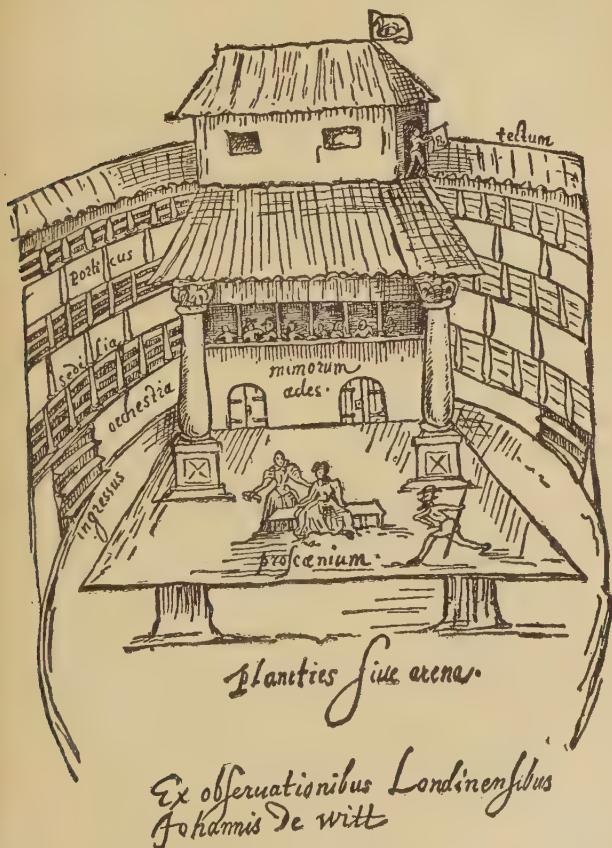 tectum
porticus
sedilia
orchestra
mimorum
ædes.
ingressus
proscænium.
planities siue arena.
Ex obseruationibus Londinensibus
Johannis De Witt